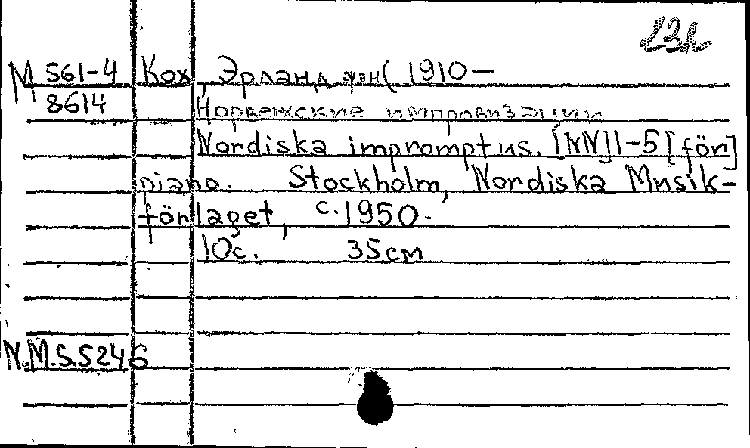 232
М 561-4 Кох, Эрланд фон (1910—
8614 Норвежские импровизации
Nordiska impromptus. [NN]1-5[för]
piano. Stockholm, Nordiska Musik-
förlaget, c.1950.
10с. 35см
N.M.S.5246